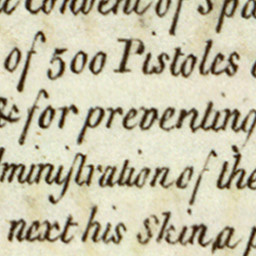 Convent of Spa
of 500 Pistoles
& for preventing
dminiſtration of the
next his Skin a p